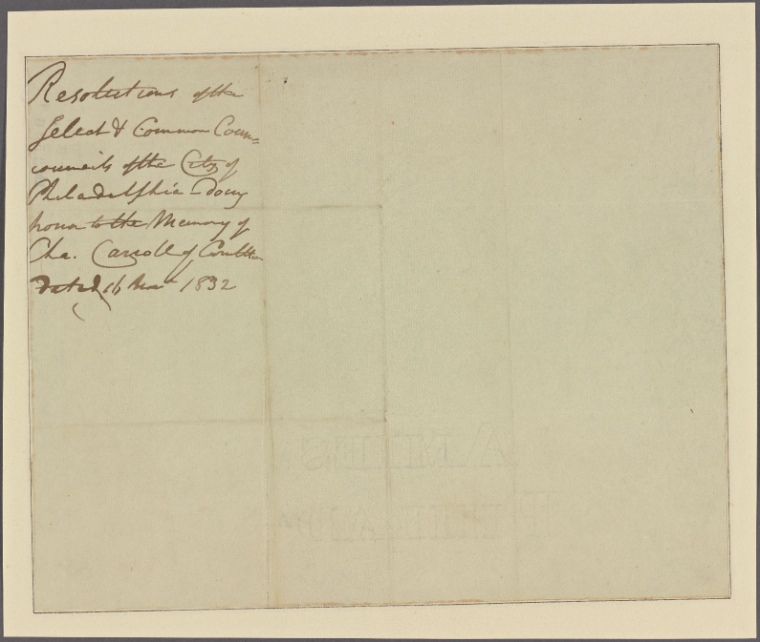 Resolutions of the
Select & Common Coun=
councils of the City of
Philadelphia doing
honor to the Memory of
Cha. Carroll of Carrollton
dated 16 Nov 1832
A MIES
PHILAD